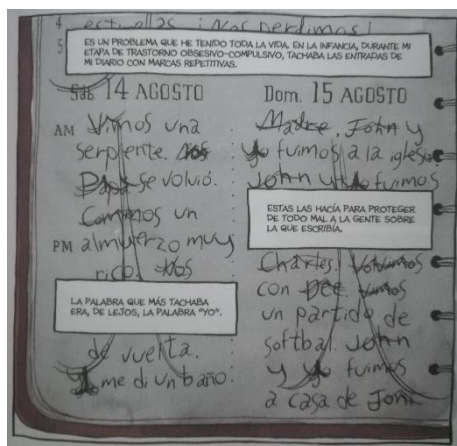 4 estrellas. ¡Nos perdimos!
5
ES UN PROBLEMA QUE HE TENIDO TODA LA VIDA. EN LA INFANCIA, DURANTE MI
ETAPA DE TRASTORNO OBSESIVO-COMPULSIVO, TACHABA LAS ENTRADAS DE
MI DIARIO CON MARCAS REPETITIVAS.
Sáb. 14 AGOSTO
AM Vimos una
serpiente. Nos
Papá se volvió.
Comimos un
PM almuerzo muy
rico. Nos
LA PALABRA QUE MÁS TACHABA
ERA, DE LEJOS, LA PALABRA "YO".
de vuelta.
Yo me di un baño.
Dom. 15 AGOSTO
Madre, John y
yo fuimos a la iglesia
John y yo fuimos
ESTAS LAS HACÍA PARA PROTEGER
DE TODO MAL A LA GENTE SOBRE
LA QUE ESCRIBÍA.
Charles. Volvimos
con Dee. Vimos
un partido de
softbal. John
y yo fuimos
a casa de John